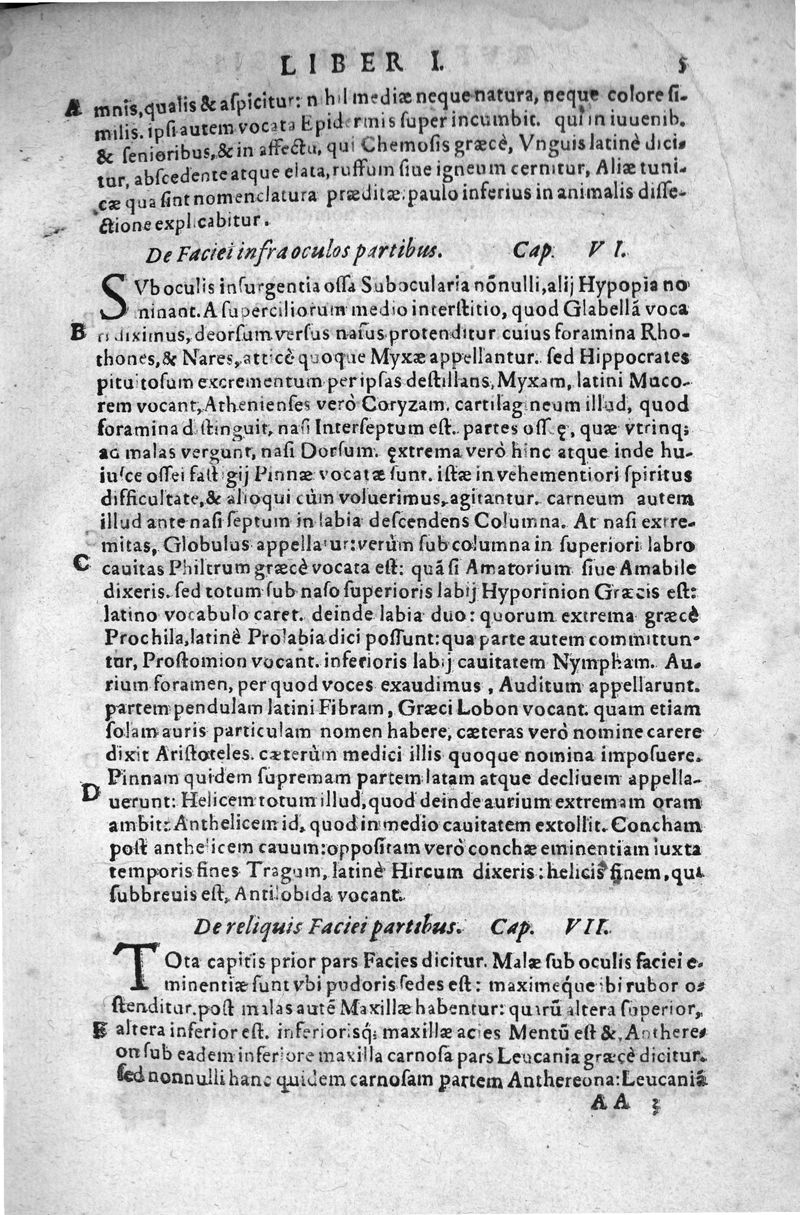 LIBER I. 5
A mnis, qualis & aſpicitur: nihil mediæ neque natura, neque colore ſi-
milis. ipſi autem vocata Epidermis ſuper incumbit. qui in iuuenib.
& ſenioribus, & in affectu, qui Chemoſis græcè, Vnguis latinè dici
tur, abſcedente atque elata, ruffum ſiue igneum cernitur, Aliæ tuni-
cæ qua ſint nomenclatura præditæ: paulo inferius in animalis diſſe-
ctione explicabitur.
De Faciei infra oculos partibus. Cap. VI.
SVb oculis inſurgentia oſſa Subocularia nõnulli, alij Hypopia no
minant. A ſuperciliorum medio interſtitio, quod Glabellã voca
B ri diximus, deorſum verſus naſus protenditur cuius foramina Rho-
thones, & Nares, atticè quoque Myxæ appellantur. ſed Hippocrates
pituitoſum excrementum per ipſas deſtillans, Myxam, latini Muco-
rem vocant, Athenienſes verò Coryzam. cartilagineum illud, quod
foramina diſtinguit, naſi Interſeptum eſt. partes oſſeę, quæ vtrinq;
ad malas vergunt, naſi Dorſum. ęxtrema verò hinc atque inde hu-
iuſce oſſei faſtigij Pinnæ vocatæ ſunt. iſtæ in vehementiori ſpiritus
difficultate, & alioqui cùm voluerimus, agitantur. carneum autem
illud ante naſi ſeptum in labia deſcendens Columna. At naſi extre-
mitas, Globulus appellatur: verùm ſub columna in ſuperiori labro
C cauitas Philtrum græcè vocata eſt: quã ſi Amatorium ſiue Amabile
dixeris. ſed totum ſub naſo ſuperioris labij Hyporinion Græcis eſt:
latino vocabulo caret. deinde labia duo: quorum extrema græcè
Prochila, latinè Prolabia dici poſſunt: qua parte autem committun-
tur, Proſtomion vocant. inferioris labij cauitatem Nympham. Au-
rium foramen, per quod voces exaudimus, Auditum appellarunt.
partem pendulam latini Fibram, Græci Lobon vocant. quam etiam
ſolam auris particulam nomen habere, cæteras verò nomine carere
dixit Ariſtoteles. cæterùm medici illis quoque nomina impoſuere.
Pinnam quidem ſupremam partem latam atque decliuem appella-
D uerunt: Helicem totum illud, quod deinde aurium extremam oram
ambit: Anthelicem id, quod in medio cauitatem extollit. Concham
poſt anthelicem cauum: oppoſitam verò conchæ eminentiam iuxta
temporis fines Tragum, latinè Hircum dixeris: helicis finem, qui
ſubbreuis eſt, Antilobida vocant.
De reliquis Faciei partibus. Cap. VII.
TOta capitis prior pars Facies dicitur. Malæ ſub oculis faciei e-
minentiæ ſunt vbi pudoris ſedes eſt: maximeque ibi rubor o-
ſtenditur. poſt malas autẽ Maxillæ habentur: quarũ altera ſuperior,
E altera inferior eſt. inferiorisq; maxillæ acies Mentũ eſt &, Anthere-
on ſub eadem inferiore maxilla carnoſa pars Leucania græcè dicitur.
ſed nonnulli hanc quidem carnoſam partem Anthereona: Leucaniã
AA 3